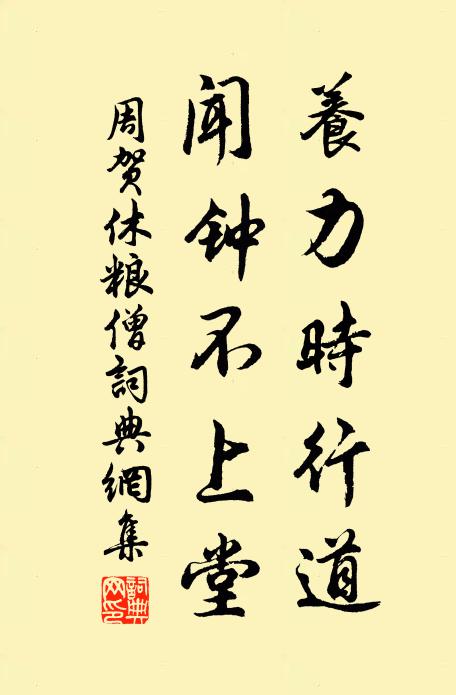 養力時行道
闻钟不上堂
周贺休粮僧詞典網集
詞典
网印